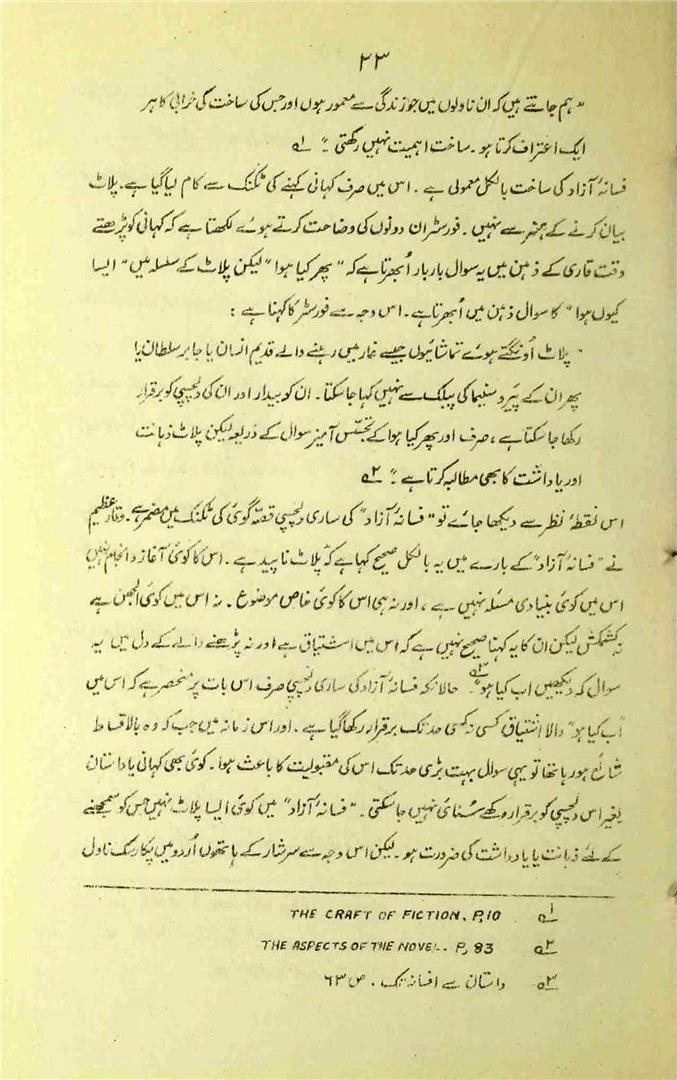 ۲۳
" ہم جانتے ہیں کہ ان ناولوں میں جو زندگی سے معمور ہوں اور جس کی ساخت کی خرابی کا ہر
ایک اعتراف کرتا ہو۔ ساخت اہمیت نہیں رکھتی ۔" ؎۱
فسانۂ آزاد کی ساخت بالکل معمولی ہے ۔ اس میں صرف کہانی کہنے کی تکنک سے کام لیا گیا ہے۔ پلاٹ
بیان کرنے کے ہنر سے نہیں ۔ فورسٹر ان دونوں کی وضاحت کرتے ہوئے لکھتا ہے کہ کہانی کو پڑھتے
وقت قاری کے ذہن میں یہ سوال بار بار اُبھرتا ہے کہ " پھر کیا ہوا " لیکن پلاٹ کے سلسلہ میں " ایسا
کیوں ہوا " کا سوال ذہن میں اُبھرتا ہے ۔ اس وجہ سے فورسٹر کا کہنا ہے :
" پلاٹ اُونگتے ہوئے تماشائیوں جیسے غار میں رہنے والے قدیم انسان یا جابر سلطان یا
پھر ان کے پیرو سنیما کی پبلک سے نہیں کہا جا سکتا ۔ ان کو بیدار اور ان کی دلچسپی کو برقرار
رکھا جا سکتا ہے ، صرف اور پھر کیا ہوا کے تجسّس آمیز سوال کے ذریعہ لیکن پلاٹ ذہانت
اور یادداشت کا بھی مطالبہ کرتا ہے ۔" ؎۲
اس نقطۂ نظر سے دیکھا جائے تو " فسانۂ آزاد " کی ساری دلچسپی قصّہ گوئی کی تکنک میں مضمر ہے ۔ وقار عظیم
نے " فسانۂ آزاد " کے بارے میں یہ بالکل صحیح کہا ہے کہ پلاٹ ناپید ہے ۔ اس کا کوئی آغاز و انجام نہیں
اس میں کوئی بنیادی مسئلہ نہیں ہے ، اور نہ ہی اس کا کوئی خاص موضوع ۔ نہ اس میں کوئی الجھن ہے
نہ کشمکش لیکن ان کا یہ کہنا صحیح نہیں ہے کہ اس میں اشتیاق ہے اور نہ پڑھنے والے کے دل میں یہ
سوال کہ دیکھیں اب کیا ہو " ؎۳ ۔ حالانکہ فسانۂ آزاد کی ساری دلچسپی صرف اس بات پر منحصر ہے کہ اس میں
"اب کیا ہو" والا اشتیاق کسی نہ کسی حد تک برقرار رکھا گیا ہے ۔ اور اس زمانہ میں جب کہ وہ بالاقساط
شائع ہو رہا تھا تو یہی سوال بہت بڑی حد تک اس کی مقبولیت کا باعث ہوا ۔ کوئی بھی کہانی یا داستان
بغیر اس دلچسپی کو برقرار رکھے سُنائی نہیں جا سکتی ۔ " فسانۂ آزاد " میں کوئی ایسا پلاٹ نہیں جس کو سمجھنے
کے لئے ذہانت یا یادداشت کی ضرورت ہو ۔ لیکن اس وجہ سے سرشار کے ہاتھوں اُردو میں پکارسک ناول
؎۱ THE CRAFT OF FICTION. P,10
؎۲ THE ASPECTS OF THE NOVEL. P, 83
؎۳ داستان سے افسانہ تک ۔ ص ۶۳